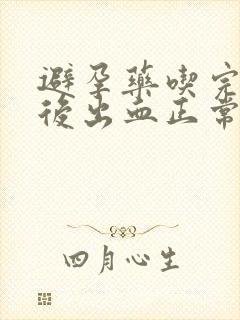 避孕藥喫完
後出血正常
四月心生